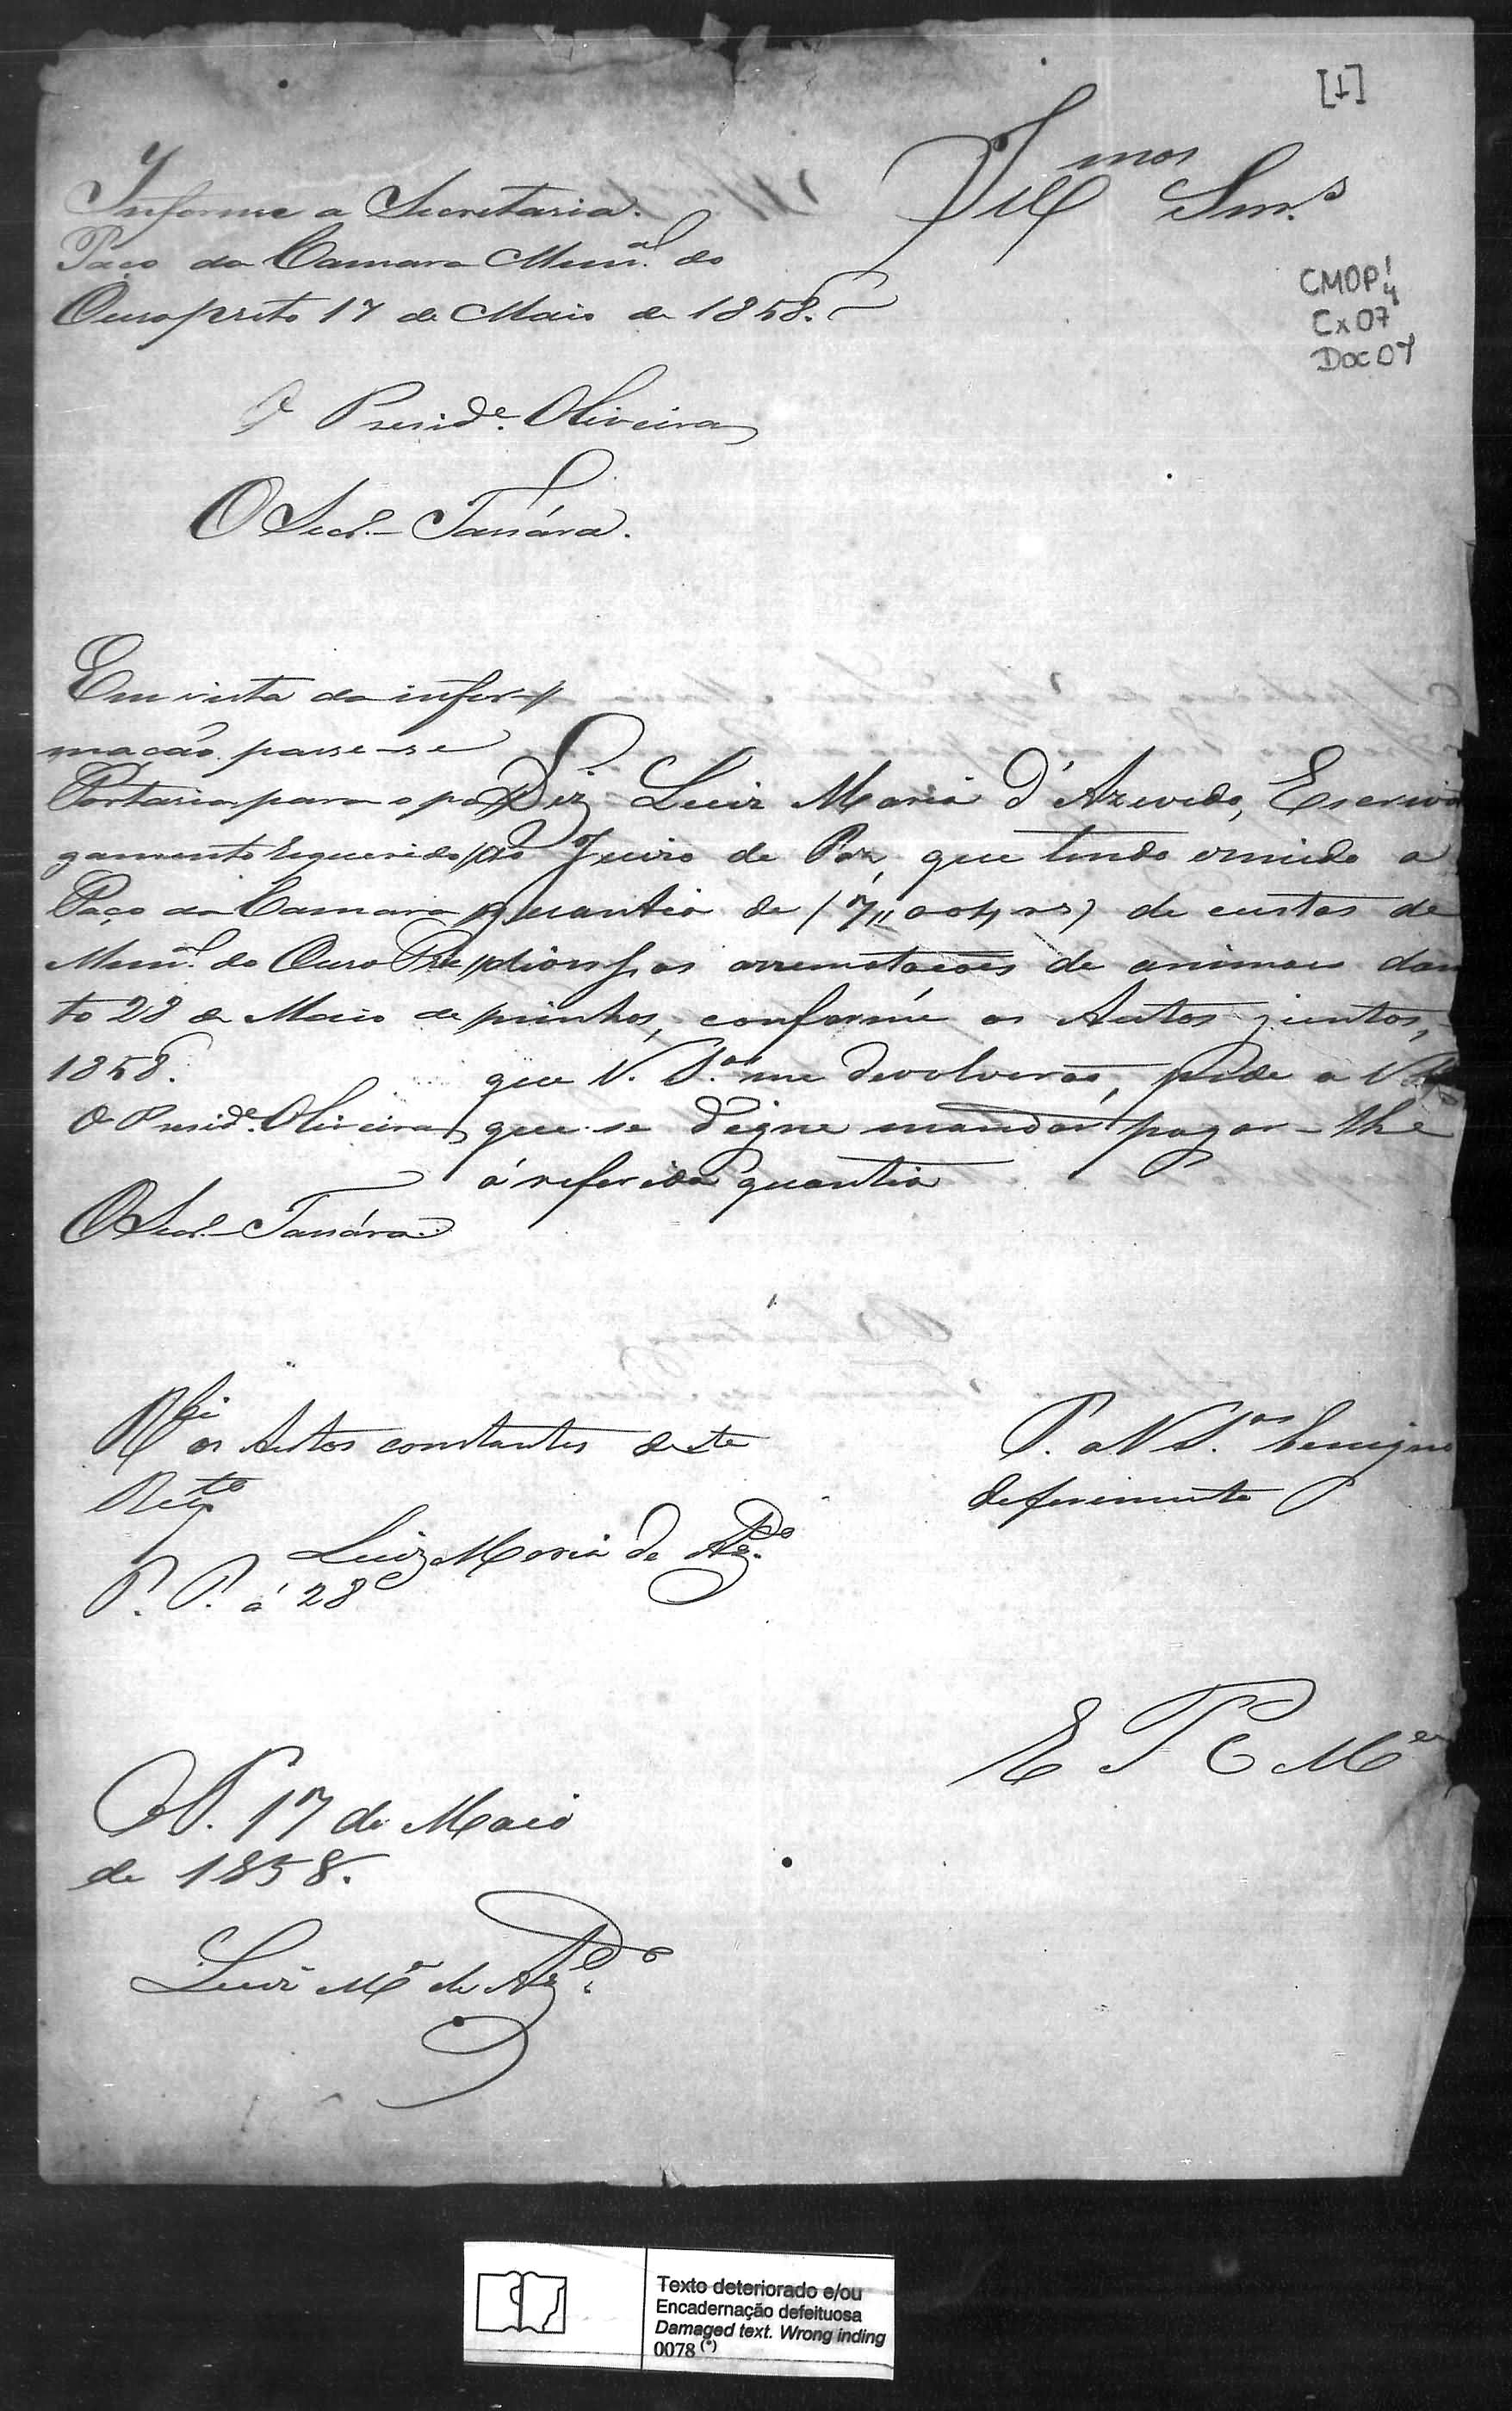 [1]
Illmos Snrs
CMOP 1/4
Cx 07
Doc 07
Informe a Secretaria.
Paço da Camara Munal do
Ouro preto 17 de Maio de 1858.
O Preside. Oliveira
O Secr.
Em vista da infor-
mação passe-se
Portaria para o pa-
gamento requerido
Paço da Camara
Munal do Ouro Pre
to 28 de Maio de
1858.
O Preside. Oliveira
O Secr.
Diz Luiz Maria d'Azevedo, Escriva
do Juizo de Paz, que tendo vencido a
quantia de de custas de
arrematacões de animaes dam
ninhos, conforme os Autos juntos,
que V. Sas me devolverão, pede a V.
que se digne mandar pagar-lhe
a referida quantia
P. a V Sas benigno
deferimento
E R Mce
Rbi os Autos constantes deste
Reqto
Luiz Maria de Azdo.
P. P. á 28
O P. 17 de Maio
de 1858.
Luiz Ma de Azdo.
Texto deteriorado e/ou
Encadernação defeituosa
Damaged text. Wrong inding
0078 (*)